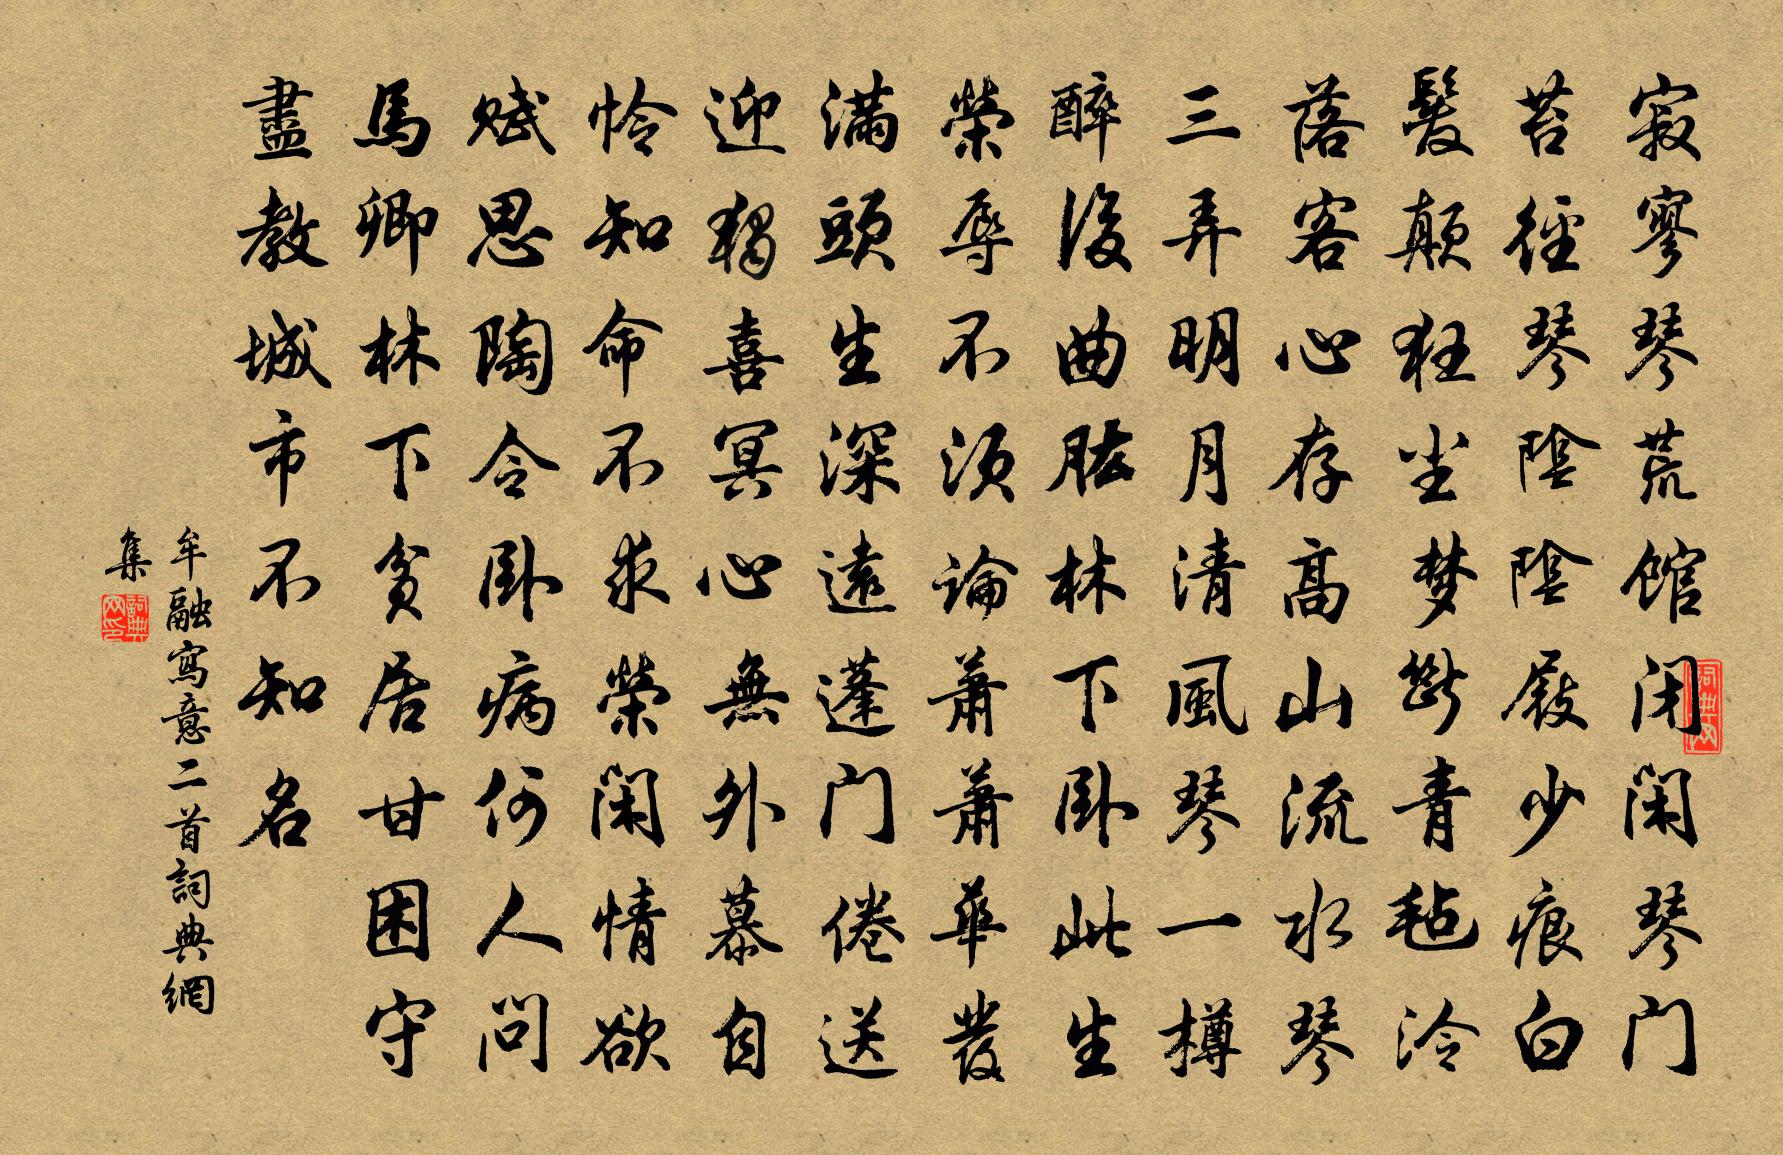 寂寥琴荒馆闭闲琴门
苔徑琴陰陰屐少痕白
髮顛狂尘梦斷青毡泠
落客心存高山流水琴
三弄明月清風琴一樽
醉後曲肱林下卧此生
榮辱不須論蕭蕭華發
滿頭生深遠蓬门倦送
迎獨喜冥心無外慕自
怜知命不求榮闲情欲
赋思陶令卧病何人问
馬卿林下贫居甘困守
盡教城市不知名
牟融寫意二首詞典網
集
詞典网印
詞典网